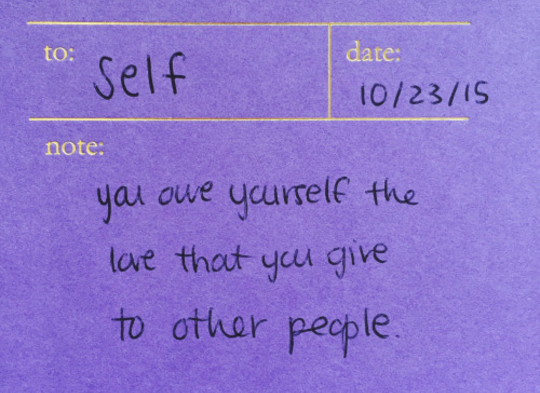 to: Self
date:
10/23/15
note:
you owe yourself the
love that you give
to other people.